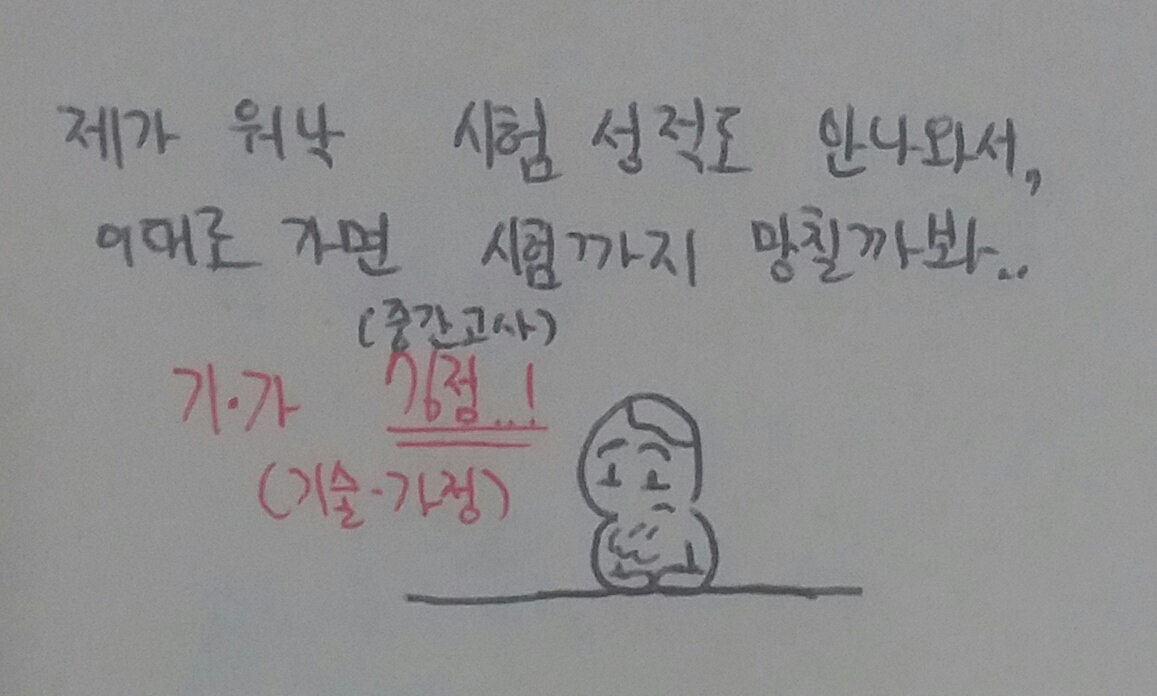 제가 워낙 시험 성적도 안나와서,
이대로 가면 시험까지 망칠까봐..
(중간고사)
기·가 73점..!
(기술·가정)